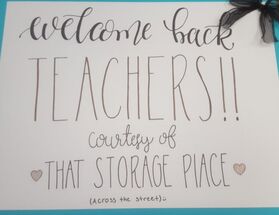 welcome back
TEACHERS!!
courtesy of
THAT STORAGE PLACE
(Across the street)